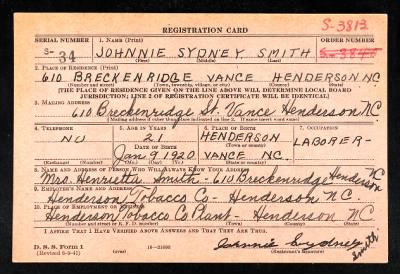 REGISTRATION CARD
S-3813
SERIAL NUMBER
1. NAME (Print)
ORDER NUMBER
S- 34
JOHNNIE SYDNEY SMITH
(First) (Middle) (Last)
2. PLACE OF RESIDENCE (Print)
610 BRECKENRIDGE VANCE HENDERSON NC
(Number and street) (Town, township, village, or city) (County) (State)
(THE PLACE OF RESIDENCE GIVEN ON THE LINE ABOVE WILL DETERMINE LOCAL BOARD
JURISDICTION; LINE 2 OF REGISTRATION CERTIFICATE WILL BE IDENTICAL)
3. MAILING ADDRESS
610 Breckenridge St. Vance Henderson NC
(Mailing address if other than place indicated on line 2. If same insert word same)
4. TELEPHONE
5. AGE IN YEARS
6. PLACE OF BIRTH
7. OCCUPATION
NO
21
HENDERSON
LABORER-
DATE OF BIRTH
(Town or county)
Jan 9 1920
VANCE NC.
(Exchange) (Number)
(Mo.) (Day) (Yr.)
(State or country)
8. NAME AND ADDRESS OF PERSON WHO WILL ALWAYS KNOW YOUR ADDRESS
Mrs. Henrietta Smith - 610 Breckenridge Henderson NC
9. EMPLOYER'S NAME AND ADDRESS
Henderson Tobacco Co - Henderson NC.
10. PLACE OF EMPLOYMENT OR BUSINESS
Henderson Tobacco Co Plant - Henderson NC
(Number and street or R. F. D. number) (Town) (County) (State)
I AFFIRM THAT I HAVE VERIFIED ABOVE ANSWERS AND THAT THEY ARE TRUE.
D. S. S. Form 1
(Revised 6-9-41)
(over)
Johnnie Sydney Smith
(Registrant's signature)